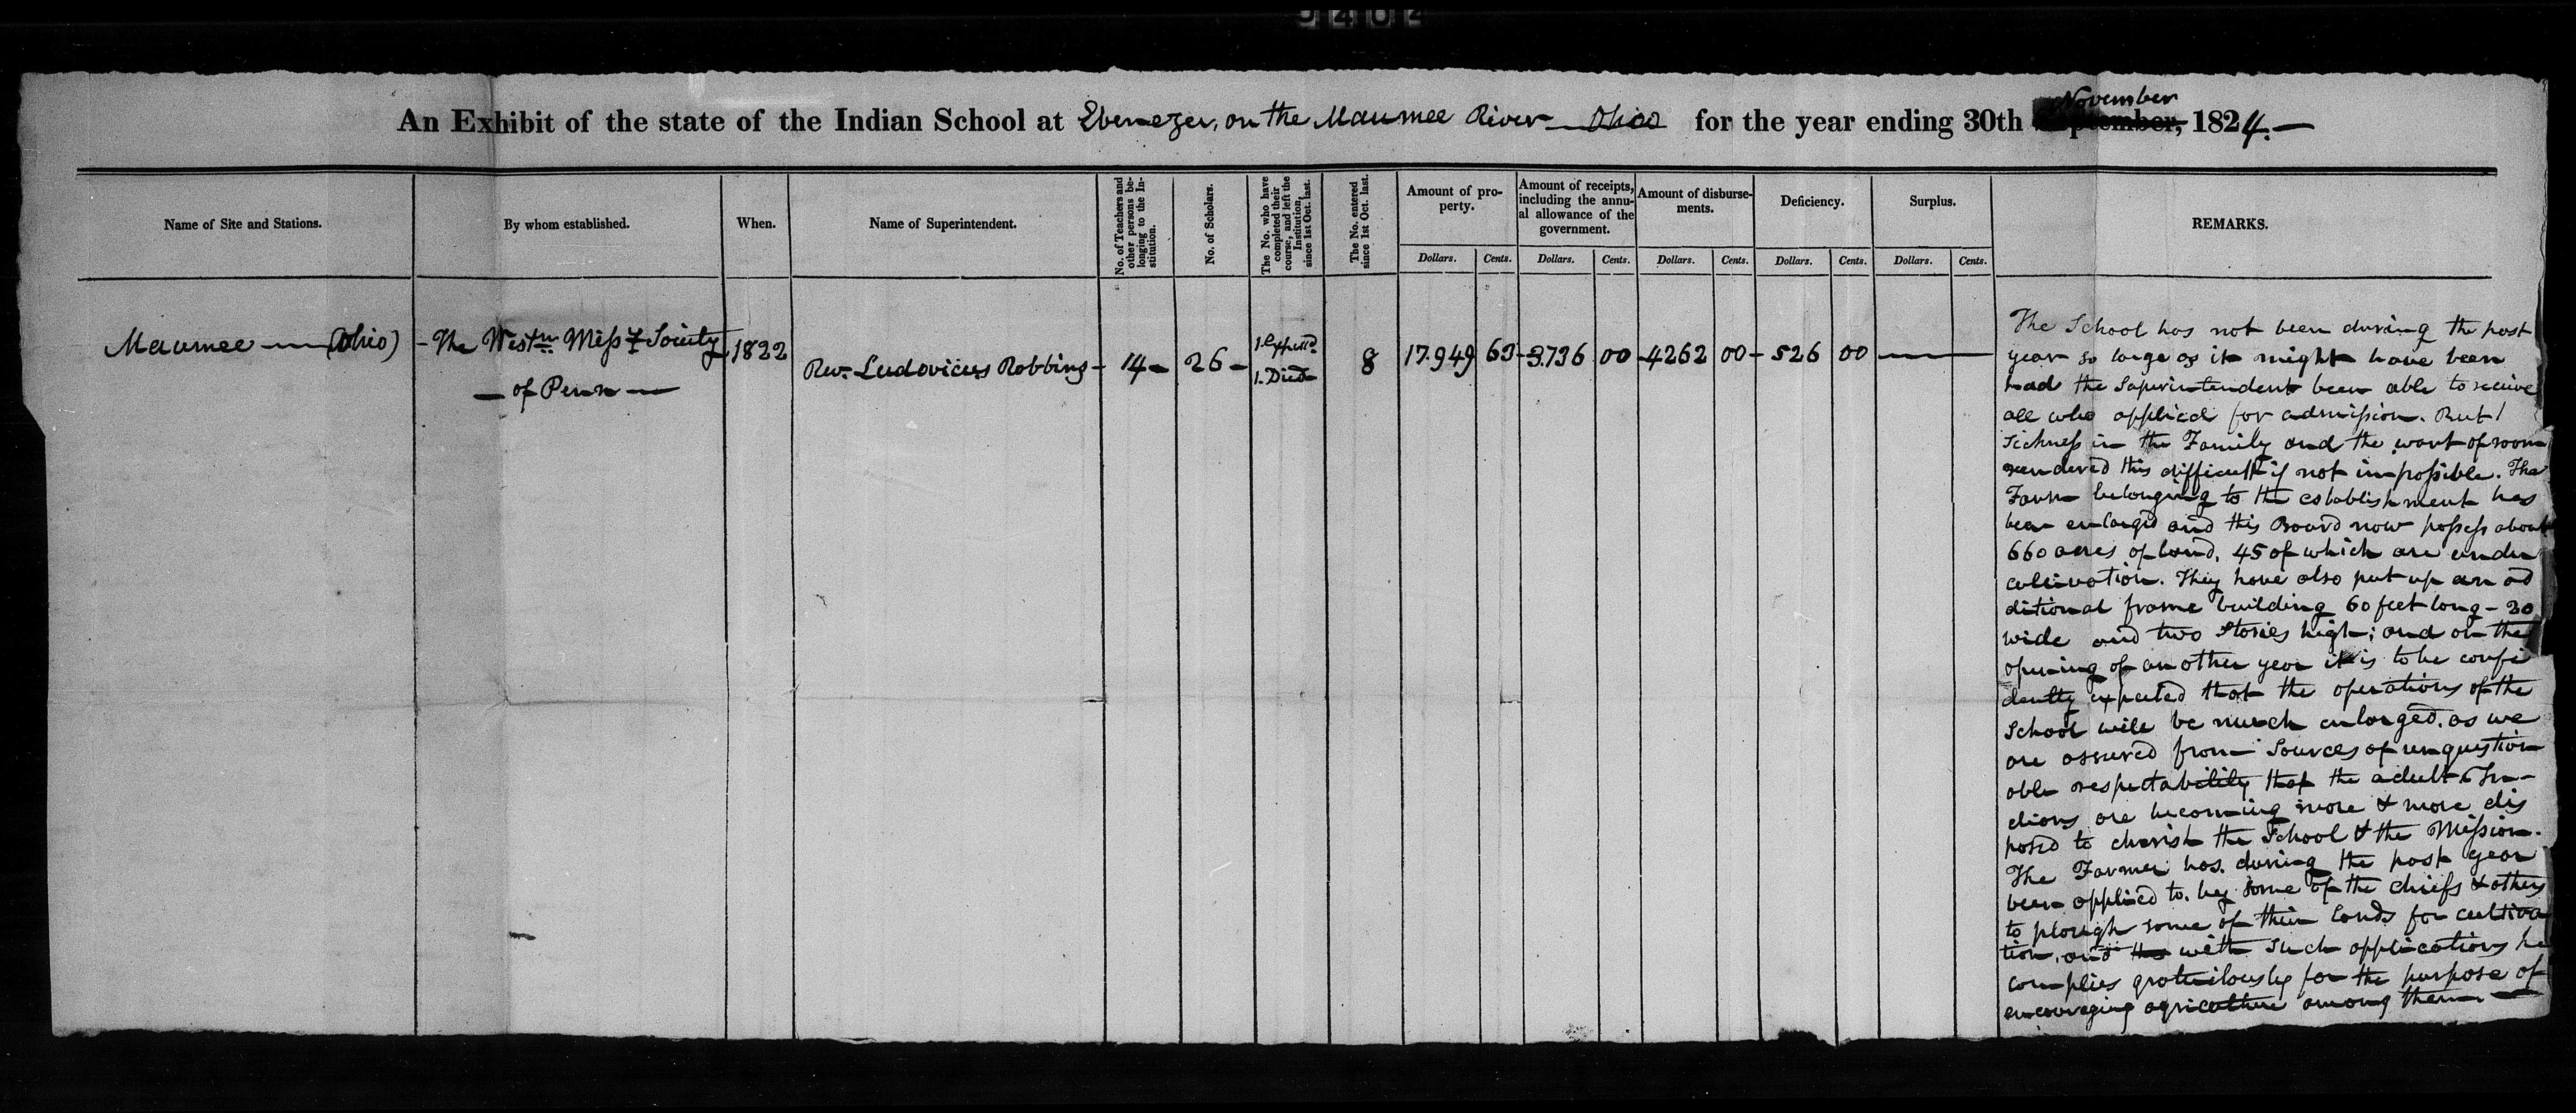 An Exhibit of the state of the Indian School at Ebenezer, on the Maumee River — Ohio for the year ending 30th November 1824.—
Name of Site and Stations.
By whom established.
When.
Name of Superintendent.
No. of Teachers and
other persons be-
longing to the In-
stitution.
No. of Scholars.
The No. who have
completed their
course, and left the
Institution,
since 1st Oct. last.
The No. entered
since 1st Oct. last.
Amount of pro-
perty.
Amount of receipts,
including the annu-
al allowance of the
government.
Amount of disburse-
ments.
Deficiency.
Surplus.
REMARKS.
Dollars. Cents. Dollars. Cents. Dollars. Cents. Dollars. Cents. Dollars. Cents.
Maumee — (Ohio)
- The Westn Missy Society
— of Penn —
1822
Rev. Ludovicus Robbins -
14 -
26 -
1. Expelld
1. Died
8
17.949 63
3.736 00
4262 00
526 00
The School has not been during the past
year so large as it might have been
had the Superintendent been able to receive
all who applied for admission. But
sickness in the Family and the want of room
rendered this difficult if not impossible. The
Farm belonging to the establishment has
been enlarged and this Board now possess about
660 acres of land, 45 of which are under
cultivation. They have also put up an ad
ditional frame building 60 feet long - 20
wide and two Stories high; and on the
opening of another year it is to be confi
dently expected that the operations of the
School will be much enlarged, as we
are assured from Sources of unquestion
able respectability that the adult In-
dians are becoming more & more dis
posed to cherish the School & the Mission.
The Farmer has during the past year
been applied to, by some of the chiefs & others
to plough some of their lands for cultiva
tion, and with such applications he
complies gratuitously for the purpose of
encouraging agriculture among them —